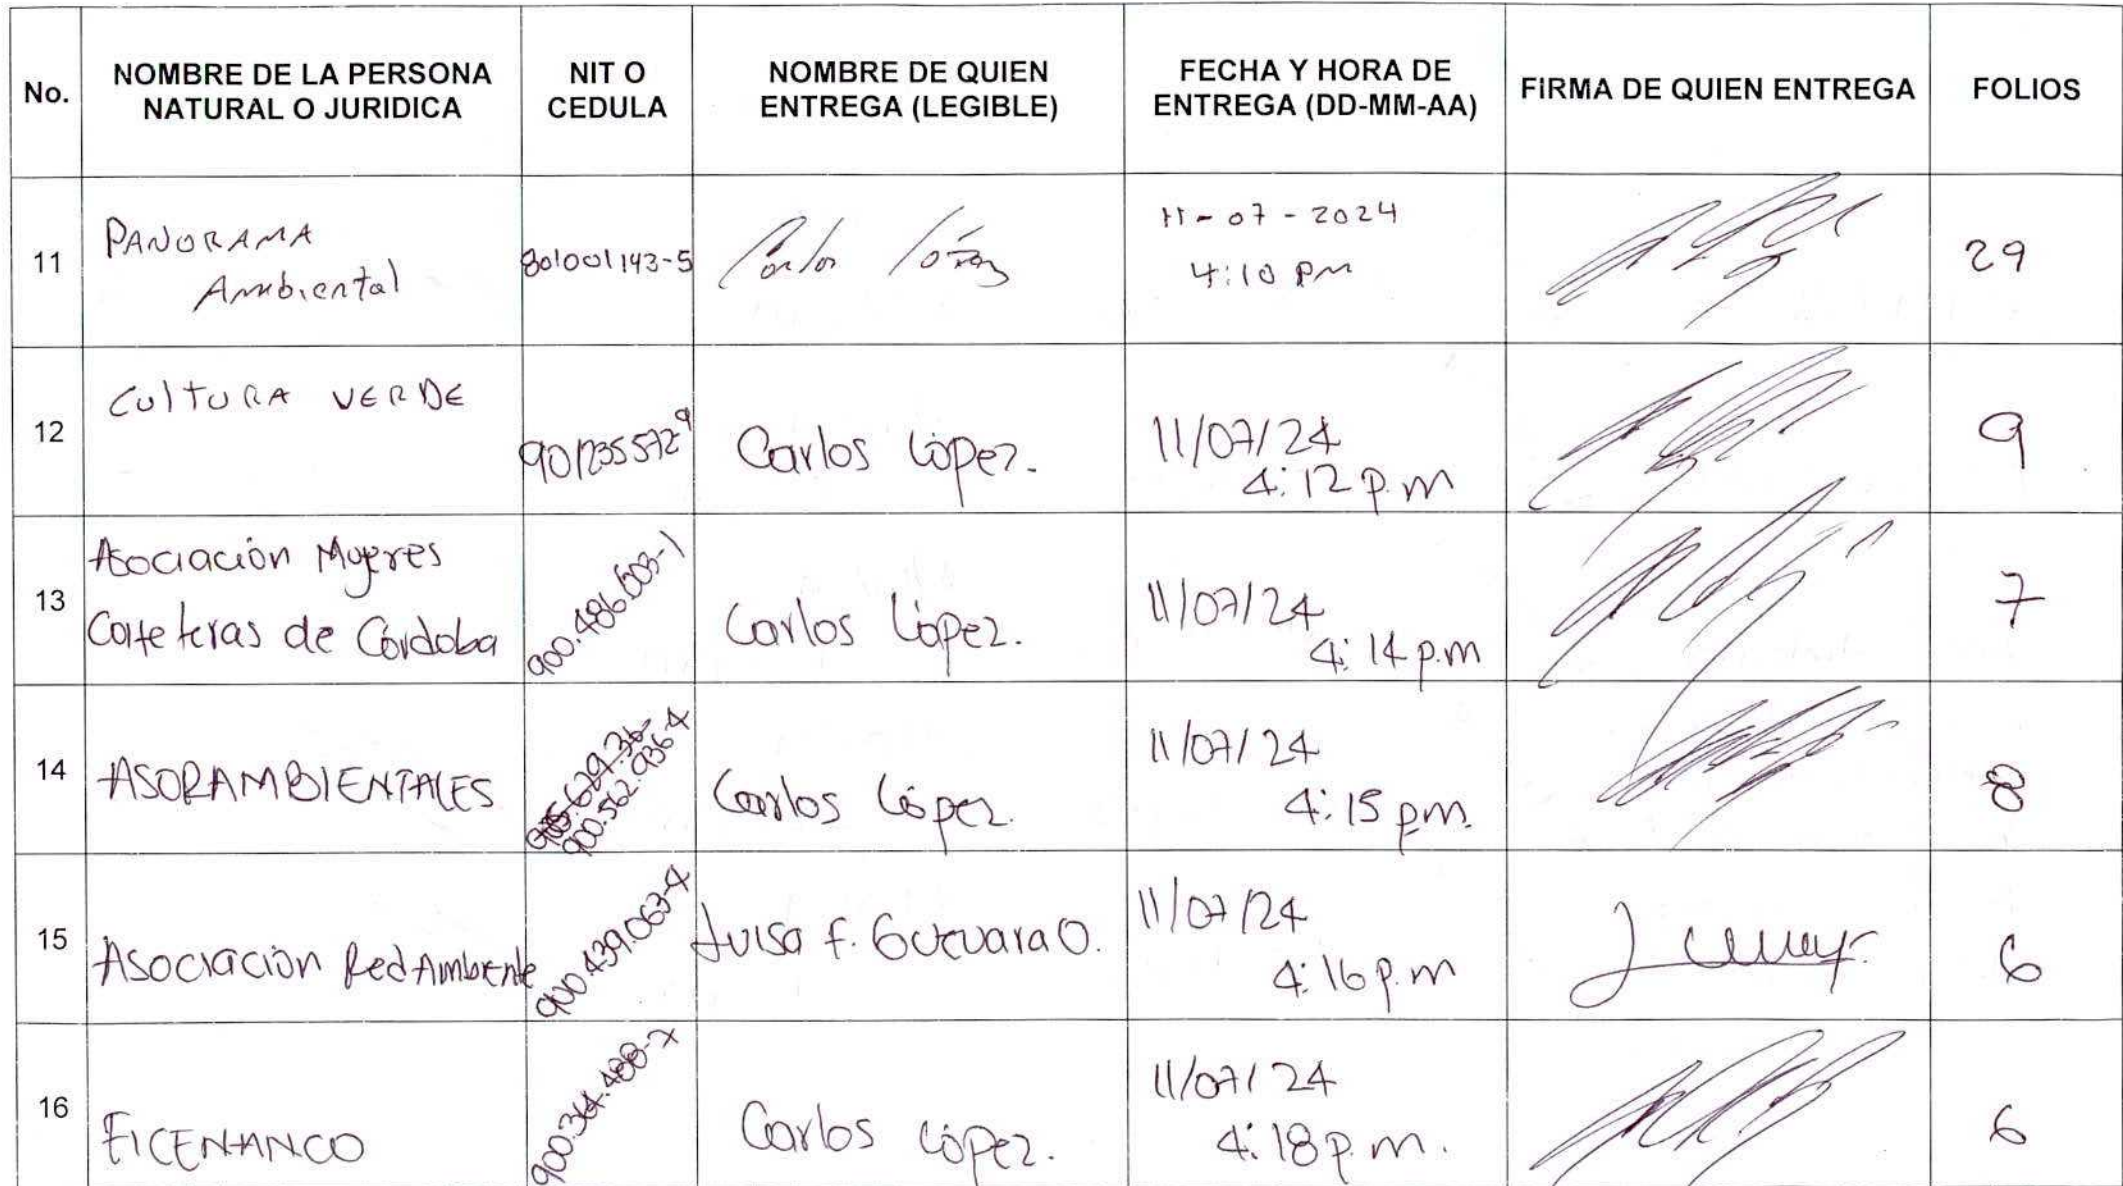 No.
NOMBRE DE LA PERSONA
NATURAL O JURIDICA
NIT O
CEDULA
NOMBRE DE QUIEN
ENTREGA (LEGIBLE)
FECHA Y HORA DE
ENTREGA (DD-MM-AA)
FIRMA DE QUIEN ENTREGA
FOLIOS
11
PANORAMA
Ambiental
801001143-5
Carlos López
11-07-2024
4:10 PM
29
12
CULTURA VERDE
901235572-9
Carlos López.
11/07/24
4:12 p.m
9
13
Asociación Mujeres
Cafeteras de Córdoba
900.486.503-1
Carlos López.
11/07/24
4:14 p.m
7
14
ASORAMBIENTALES
900.562.936-4
Carlos López.
11/07/24
4:15 pm.
8
15
Asociación Red Ambiente
900.439.063-4
Luisa F. Guevara O.
11/07/24
4:16 p.m
6
16
FICENANCO
Carlos López.
11/07/24
4:18 p.m.
6